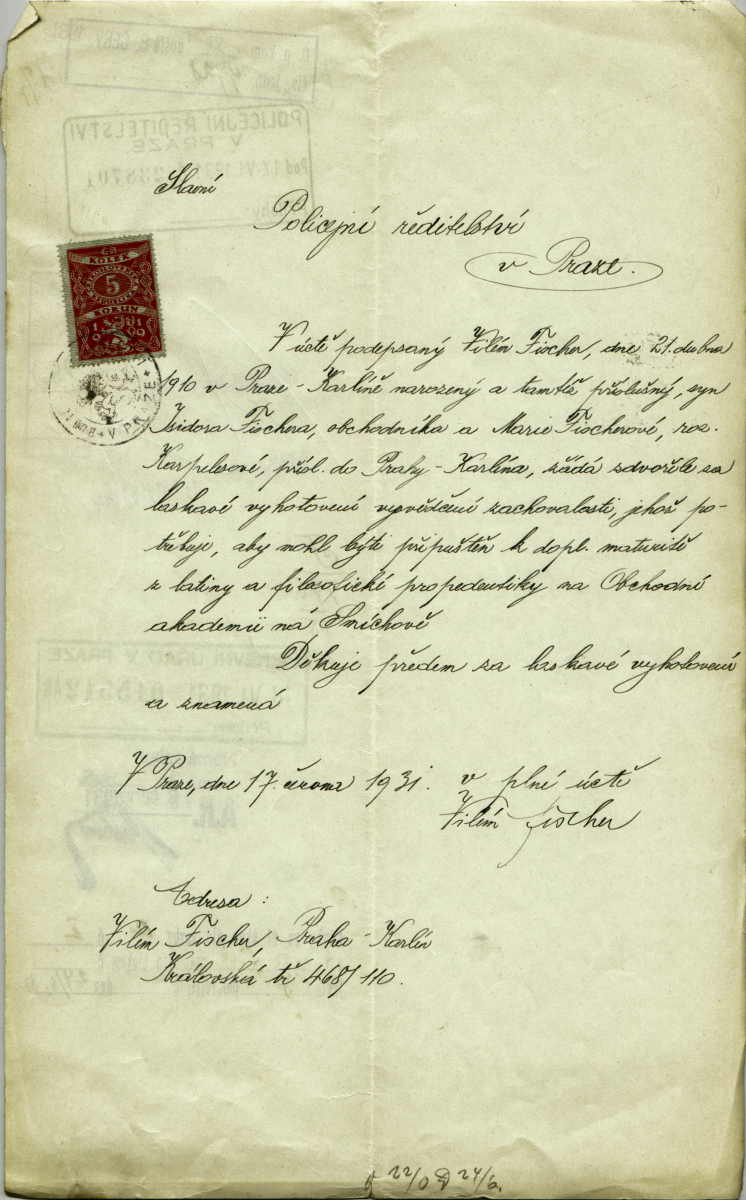 Slavné
Policejní ředitelství
v Praze.
KOLEK
5
KORUN
V PRAZE
V úctě podepsaný Vilém Fischer, dne 21. dubna
1910 v Praze-Karlíně narozený a tamtéž příslušný, syn
Isidora Fischera, obchodníka a Marie Fischerové, roz.
Karpelesové, přísl. do Prahy-Karlína, žádá zdvořile za
laskavé vyhotovení vysvěčení zachovalosti, jehož po-
třebuje, aby mohl býti připuštěn k dopl. maturitě
z latiny a filosofické propedeutiky na Obchodní
akademii na Smíchově
Děkuje předem za laskavé vyhotovení
a znamená
V Praze, dne 17. června 1931. v plné úctě
Vilém Fischer
Adresa:
Vilém Fischer, Praha-Karlín
Královská tř 468/110.
POLICEJNÍ ŘEDITELSTVÍ
V PRAZE
22/6 24/6.